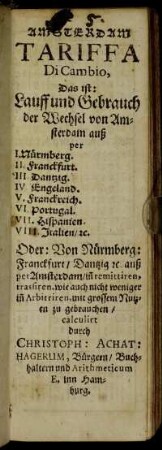 AMSTERDAM
TARIFFA
Di Cambio,
Das ist:
Lauff und Gebrauch
der Wechsel von Am-
sterdam auß
per
I. Nürmberg.
II. Franckfurt.
III Dantzig.
IV Engeland.
V. Franckreich.
VI Portugal.
VII. Hispanien.
VIII. Italien/ ꝛc.
Oder: Von Nürmberg:
Franckfurt/ Dantzig ꝛc. auß
per Amsterdam/ zu remittiren,
trassiren. wie auch nicht weniger
im Arbitriren, mit grossem Nutz-
en zu gebrauchen/
calculirt
durch
CHRISTOPH: ACHAT:
HAGERUM, Bürgern/ Buch-
haltern und Arithmeticum
E. inn Ham-
burg.